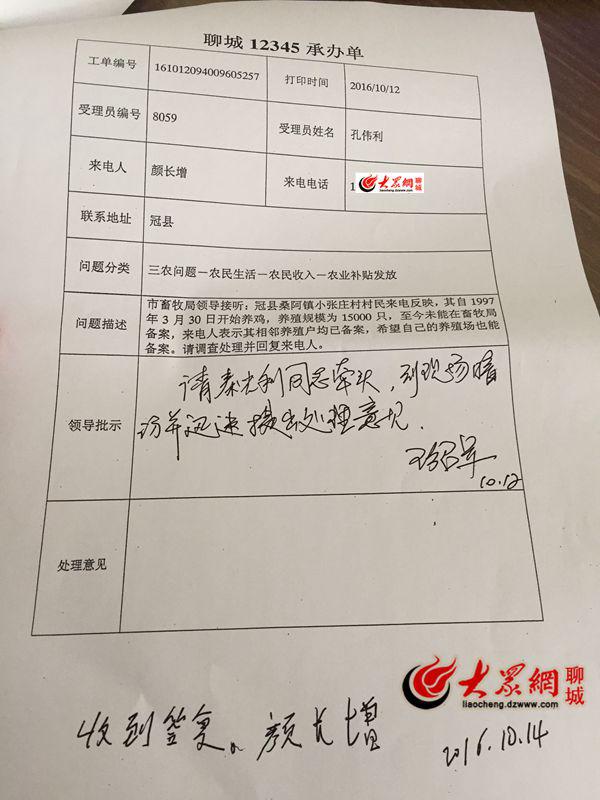 聊城 12345 承办单
工单编号 161012094009605257 打印时间 2016/10/12
受理员编号 8059 受理员姓名 孔伟利
来电人 颜长增 来电电话 1 大众網 聊城
liaocheng.dzwww.com
联系地址 冠县
问题分类 三农问题－农民生活－农民收入－农业补贴发放
市畜牧局领导接听：冠县桑阿镇小张庄村村民来电反映，其自 1997
年 3 月 30 日开始养鸡，养殖规模为 15000 只，至今未能在畜牧局
问题描述
备案，来电人表示其相邻养殖户均已备案，希望自己的养殖场也能
备案。请调查处理并回复来电人。
请秦光利同志牵头，到现场暗
领导批示
访并迅速提出处理意见.
10.12
处理意见
大众網 聊城
liaocheng.dzwww.com
收到答复。颜长增 2016.10.14